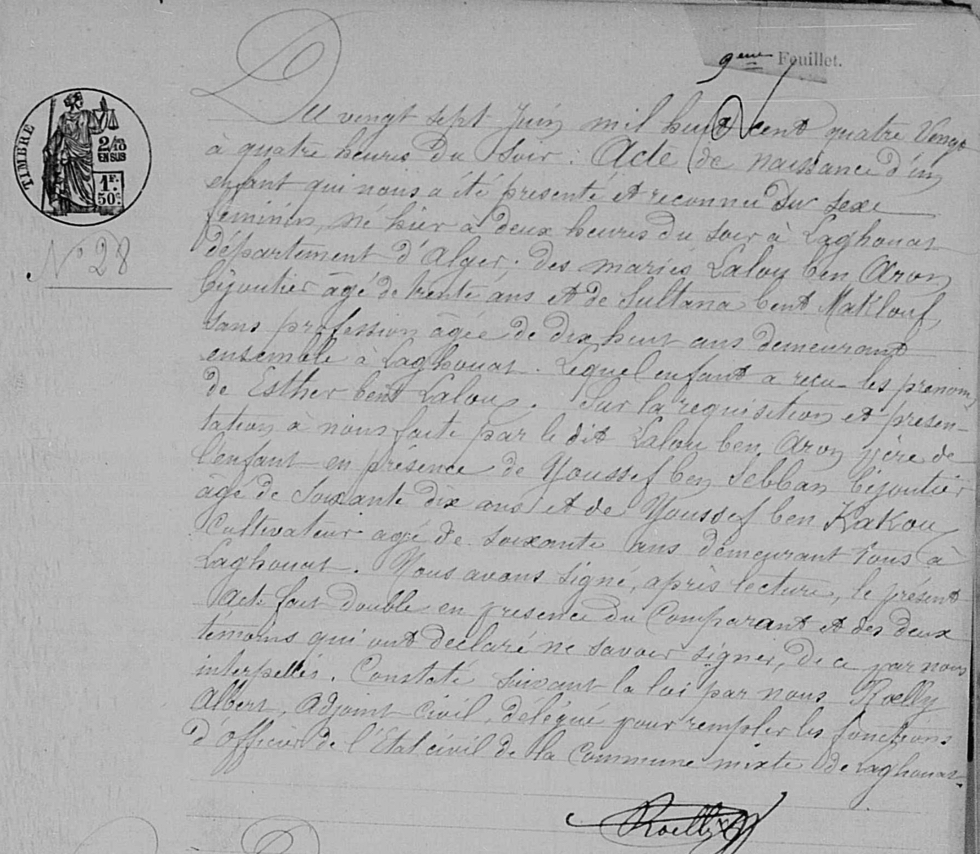 9eme Feuillet.
TIMBRE
2/10
EN SUS
1F.
50c.
N° 28
Du vingt sept Juin mil huit cent quatre Vingt
à quatre heures du Soir. Acte de naissance d'un
enfant qui nous a été présenté et reconnu du sexe
féminin, né hier à deux heures du soir à Laghouat
département d'Alger, des mariés Lalou ben Aron
bijoutier âgé de trente ans et de Sultana bent Maklouf,
sans profession âgée de dix huit ans demeurant
ensemble à Laghouat. Lequel enfant a reçu les prénoms
de Esther bent Lalou. Sur la requisition et présen-
tation à nous faite par le dit Lalou ben Aron père de
l'enfant en présence de Youssef ben Sebban bijoutier
âgé de Soixante dix ans et de Youssef ben Kakou
Cultivateur agé de soixante ans demeurant tous à
Laghouat. Nous avons signé, après lecture, le présent
acte fait double en présence du Comparant et des deux
temoins qui ont déclaré ne savoir signer, de ce par nous
interpellés. Constaté suivant la loi par nous Roelly
Albert, Adjoint Civil, délégué pour remplir les fonctions
d'officier de l'Etat civil de la Commune mixte de Laghouat.
Roelly